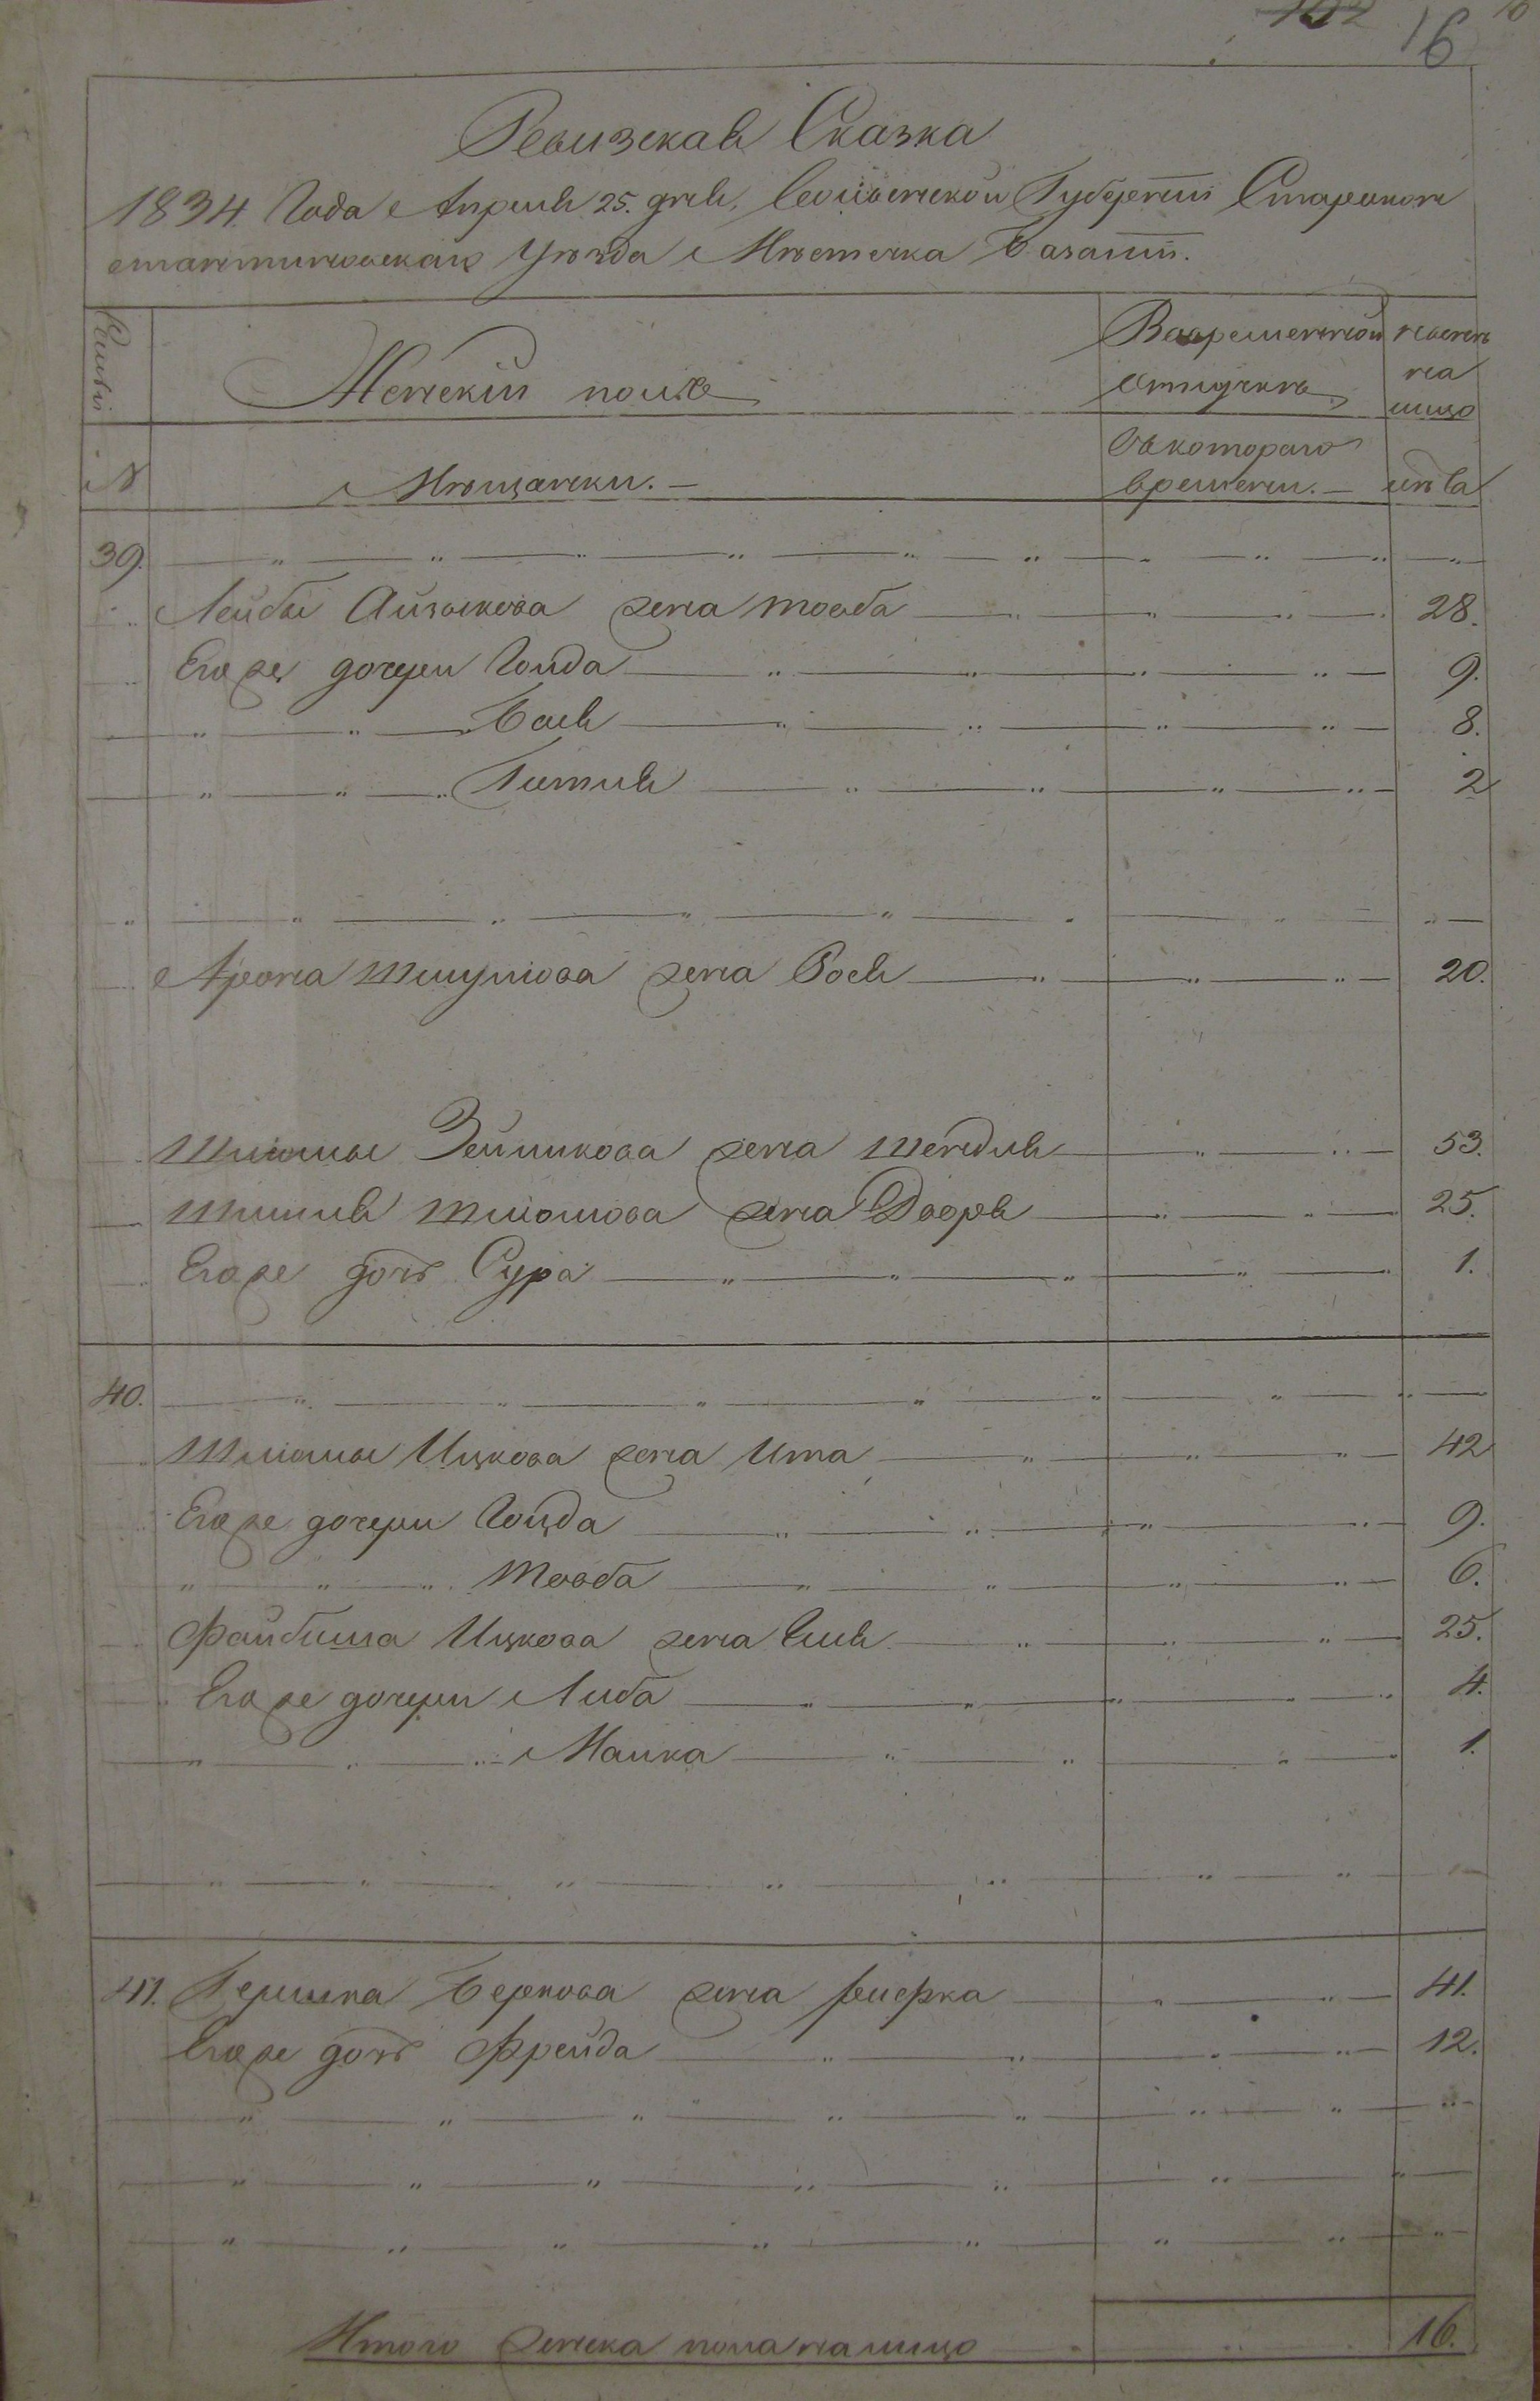 102 16 10
Ревизская Сказка
1834. Года Апреля 25. дня, Волынской Губернiи Староконстантиновскаго Уѣзда Мѣстечка Базалiи.
Семьи Женскiй полъ Во временной отлучкѣ нынѣ на лицо
№ Мѣщанки. — Съ котораго времени. — лѣта
39.
Лейбы Айзыкова жена Товба 28.
Его же дочери Гольда 9.
Бася 8.
Гитля 2
Арона Шмулiова жена Рося 20.
Шліомы Зейликова жена Шендля 53.
Шмиля Шліомова жена Дворя 25.
Его же дочь Сура 1.
40.
Шліомы Ицкова жена Ита 42
Его же дочери Гольда 9.
Товба 6.
Файбиша Ицкова жена Еля 25.
Его же дочери Либа 4.
Малка 1.
41. Гершка Беркова жена Рифка 41.
Его же дочь Фрейда 12.
Итого женска пола на лицо 16.